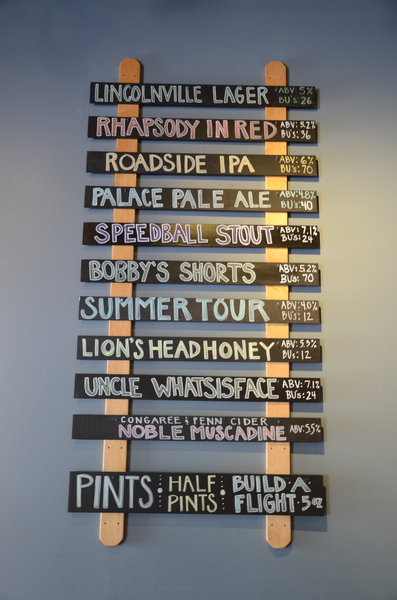 LINCOLNVILLE LAGER ABV: 5%
BU's: 26
RHAPSODY IN RED ABV: 5.2%
BU's: 36
ROADSIDE IPA ABV: 6%
BU's: 70
PALACE PALE ALE ABV: 4.8%
BU's: 40
SPEEDBALL STOUT ABV: 7.1%
BU's: 24
BOBBY'S SHORTS ABV: 5.2%
BU's: 70
SUMMER TOUR ABV: 4.0%
BU's: 12
LION'S HEAD HONEY ABV: 5.5%
BU's: 12
UNCLE WHATSISFACE ABV: 7.1%
BU's: 24
CONGAREE & PENN CIDER
NOBLE MUSCADINE ABV: 5.5%
PINTS: HALF PINTS: BUILD A FLIGHT · 5oz